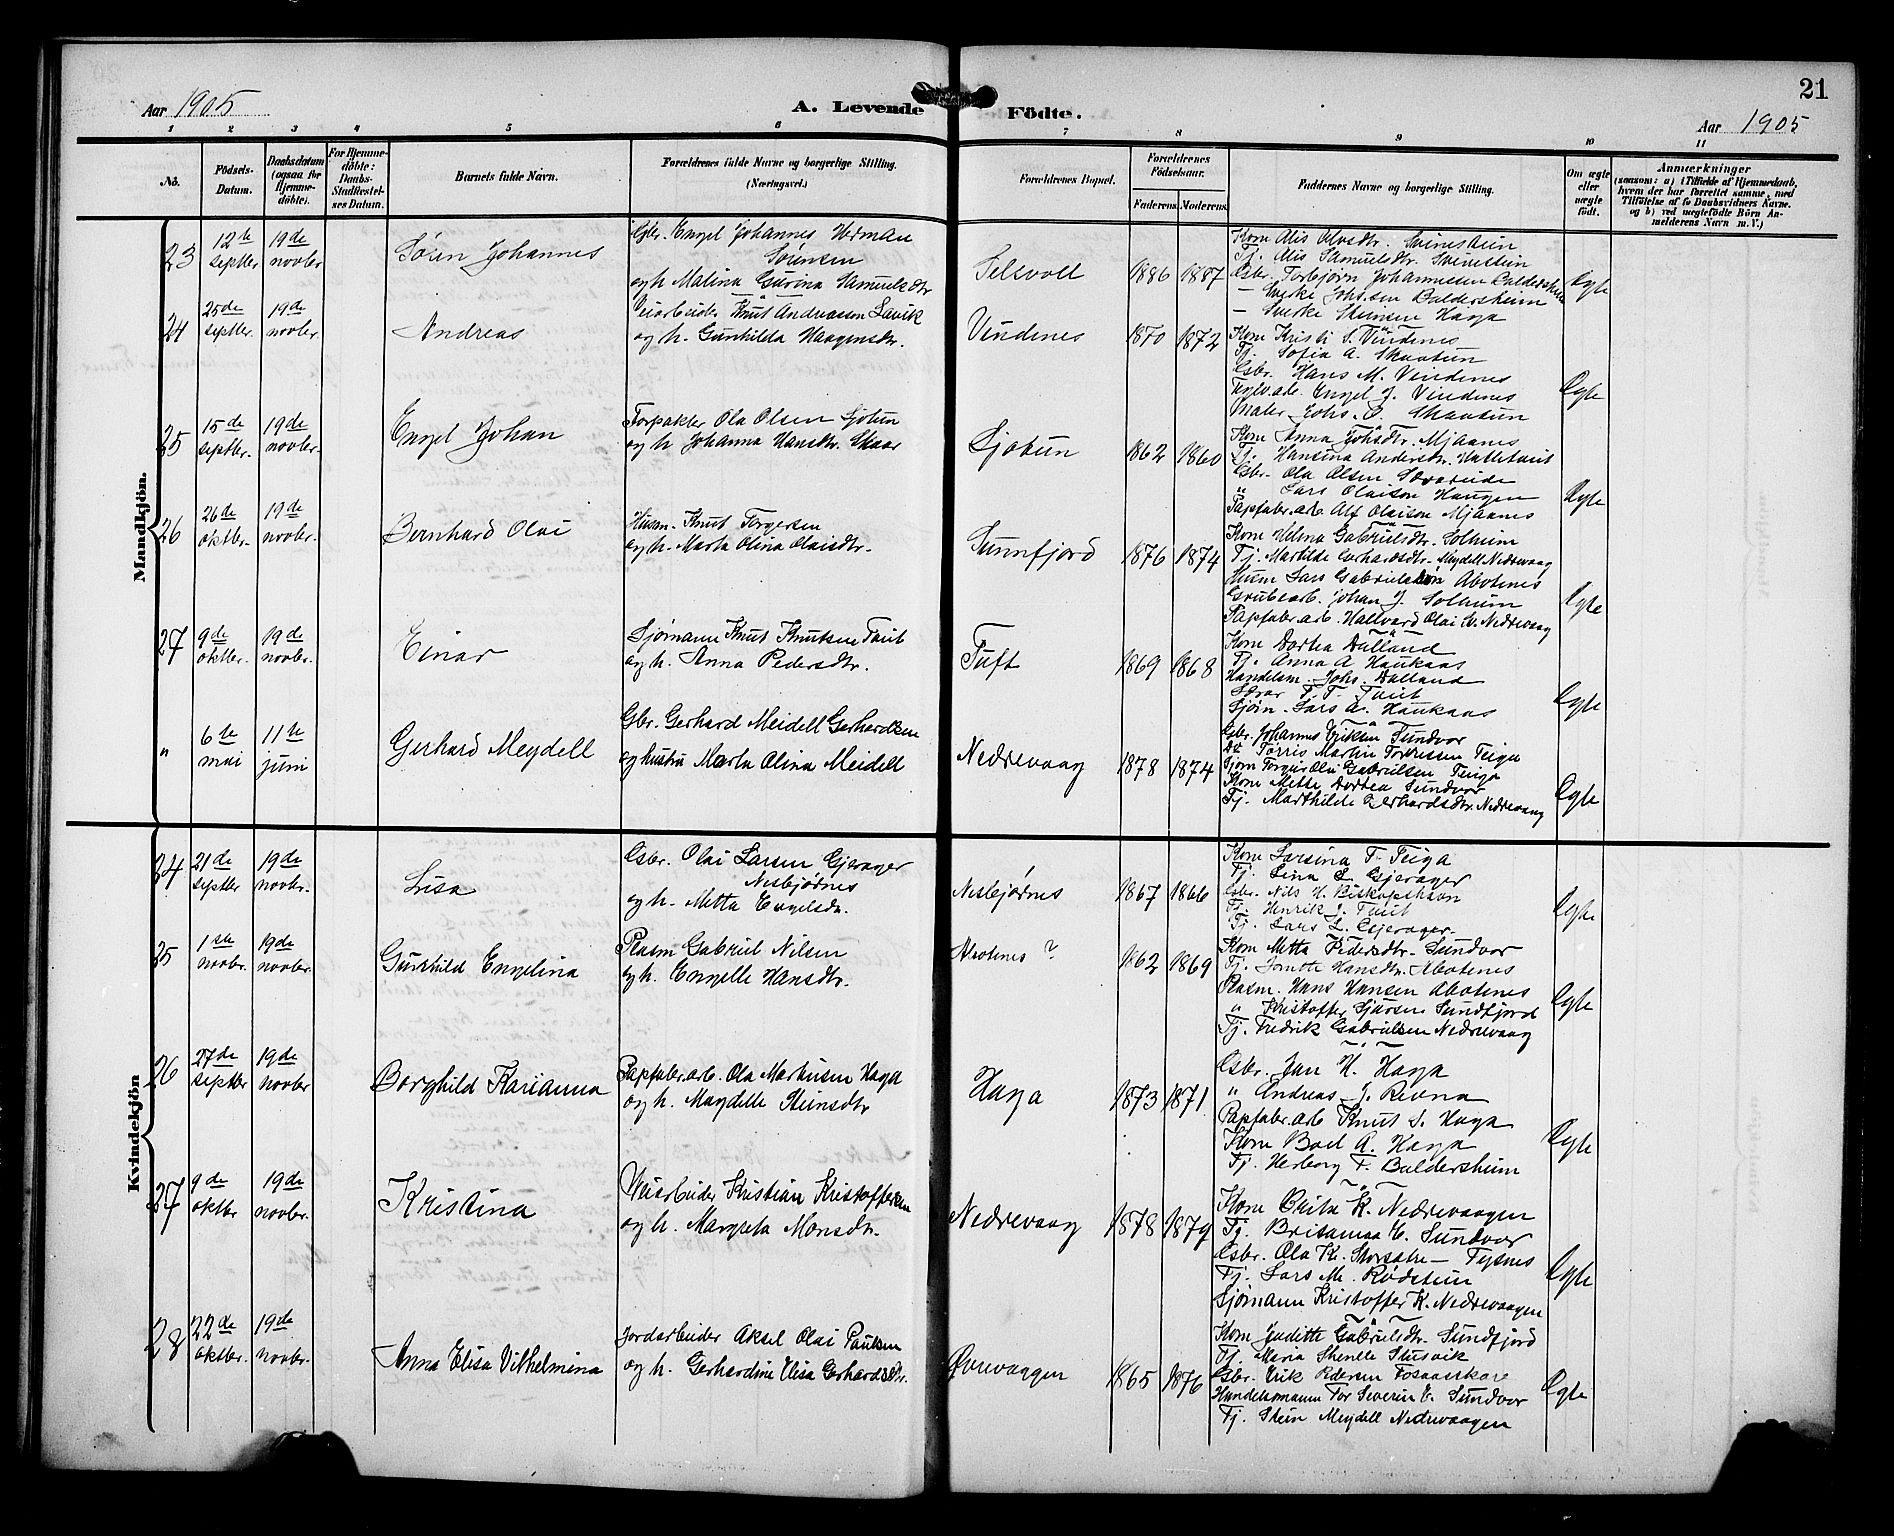 21
Aar 1905
A. Levende Födte.
Aar 1905
1 2 3 4 5 6 7 8 9 10 11
No.
Födsels-Datum.
Daabsdatum (ogsaa for Hjemme-döbte).
For Hjemme-döbte: Daabs-Stadfæstel-ses Datum.
Barnets fulde Navn.
Forældrenes fulde Navne og borgerlige Stilling. (Næringsvei.)
Forældrenes Bopæl.
Forældrenes Födselsaar.
Faderens. Moderens.
Faddernes Navne og borgerlige Stilling.
Om ægte eller uægte født.
Anmærkninger
(saasom: a) i Tilfælde af Hjemmedaab, hvem der har forrettet samme, med Tilföielse af to Daabsvidners Navne. og b) ved uægtefödte Börn An-melderens Navn m. V.)
Mandkjön.
23 12te septbr 19de novbr Søren Johannes
Gbr. Engel Johannes Herman
Sørensen
og h. Malina Gurina Samuelsdtr
Selsvoll 1886 1887
Kone Alis Olvsdtr. Svinestein
Tj. Alis Samuelsdtr. Svinestein
Gbr. Torbjørn Johannessen Baldersheim
— Sverke Johs.sen Baldersheim
— Sverke Steinsen Haga
Egte
24 25de septbr. 19de novbr. Andreas
Veiarbeider Knut Andreassen Lavik
og h. Gunhilda Haagensdtr.
Vindenes 1870 1872
Kone Kristi S. Vindenes
Tj. Sofia A. Skaatun
Gbr. Hans M. Vindenes
Engel J. Vindenes
Maler Johs. O. Skaatun
Egte
25 15de septbr. 19de novbr. Engel Johan
Forpakter Ola Olsen Sjotun
og h. Johanna Hansdtr. Skaar
Sjotun 1862 1860
Kone Anna Johsdtr. Mjaanes
Tj. Hansina Andersdtr. Hatletveit
Gbr. Ola Olsen
" Lars Olaison Haugen
Papfabr.arb. Alf Olaison Mjaanes
Egte
26 26de oktbr. 19de novbr. Bernhard Olai
Husm. Knut Torgersen
og h. Marta Olina Olaisdtr.
Sunnfjord 1876 1874
Kone Helina Gabrielsdtr. Solheim
Tj. Martilde Gerhardsdtr. Meydell Nedrevaag
Husm Lars Gabrielsen Abotenes
Grubearb. Johan J. Solheim
Papfabr.arb. Hallvard Olai K. Nedrevaag
Egte
27 9de oktbr. 19de novbr. Einar
Sjømann Knut Knutsen Tveit
og h. Anna Pedersdtr.
Tuft 1869 1868
Kone Dortea Dalland
Tj. Anna A. Haukaas
Handelsm. Johs. Dalland
T. T. Tveit
Sjøm. Lars A. Haukaas
Egte
" 6te mai 11te juni Gerhard Meydell
Gbr. Gerhard Meidell Gerhardsen
og hustru Marta Olina Meidell
Nedrevaag 1878 1874
Gbr. Johannes Eriksen Sundvor
Do Torris Martin Torrissen Teiga
Sjøm Torger Olai Gabrielsen Teiga
Kone Mette Dortea Sundvor
Tj. Marthilde Gerhardsdtr. Nedrevaag
Egte
Kvindekjön
24 21de septbr 19de novbr. Lisa
Gbr. Olai Larsen Gjerager
Nesbjørnes
og h. Metta Engelsdtr.
Nesbjørnes 1867 1866
Kone Larsina T. Teiga
Tj. Lina L. Gjerager
Gbr. Nils H. Biskopshavn
Tj. Henrik J. Tveit
Tj. Lars L. Gjerager
Egte
25 1ste novbr. 19de novbr. Gunhild Engelina
Plasm Gabriel Nilsen
og h. Engelle Hansdtr.
Abotenes ? 1862 1869
Kone Metta Pedersdtr. Sundvor
Tj. Jonette Hansdtr. Abotenes
Plasm. Hans Hansen Abotenes
" Kristoffer Sjursen Sundfjord
Tj. Fredrik Gabrielsen Nedrevaag
Egte
26 27de septbr 19de novbr Borghild Karianna
Papfabr.arb. Ola Markusen Haga
og h. Magdelle Steinsdtr
Haga 1873 1871
Gbr. Jan H. Haga
" Andreas J. Revna
Papfabr.arb Knut S. Haga
Kone Boel A. Haga
Tj. Herborg T. Baldersheim
Egte
27 9de oktbr 19de novbr. Kristina
Veiarbeider Kristian Kristoffersen
og h. Margreta Monsdtr.
Nedrevaag 1878 1879
Kone Brita K. Nedrevaagen
Tj. Britanna E. Sundvor
Gbr. Ola K. — Tysnes
Tj. Lars M. Rødstein
Sjømann Kristoffer K. Nedrevaagen
Egte
28 22de oktbr. 19de novbr. Anna Elisa Vilhelmina
Jordarbeider Aksel Olai Paulsen
og h. Gerhardine Elisa Gerhardsdtr.
Øvrevaagen 1865 1876
Kone Juditte Gabrielsdtr. Sundfjord
Tj. Maria Stenelle Stusvik
Gbr. Erik Pedersen Fosaaskare
Handelsmann Tor Severin E. Sundvor
Tj. Stein Meydell Nedrevaagen
Egte